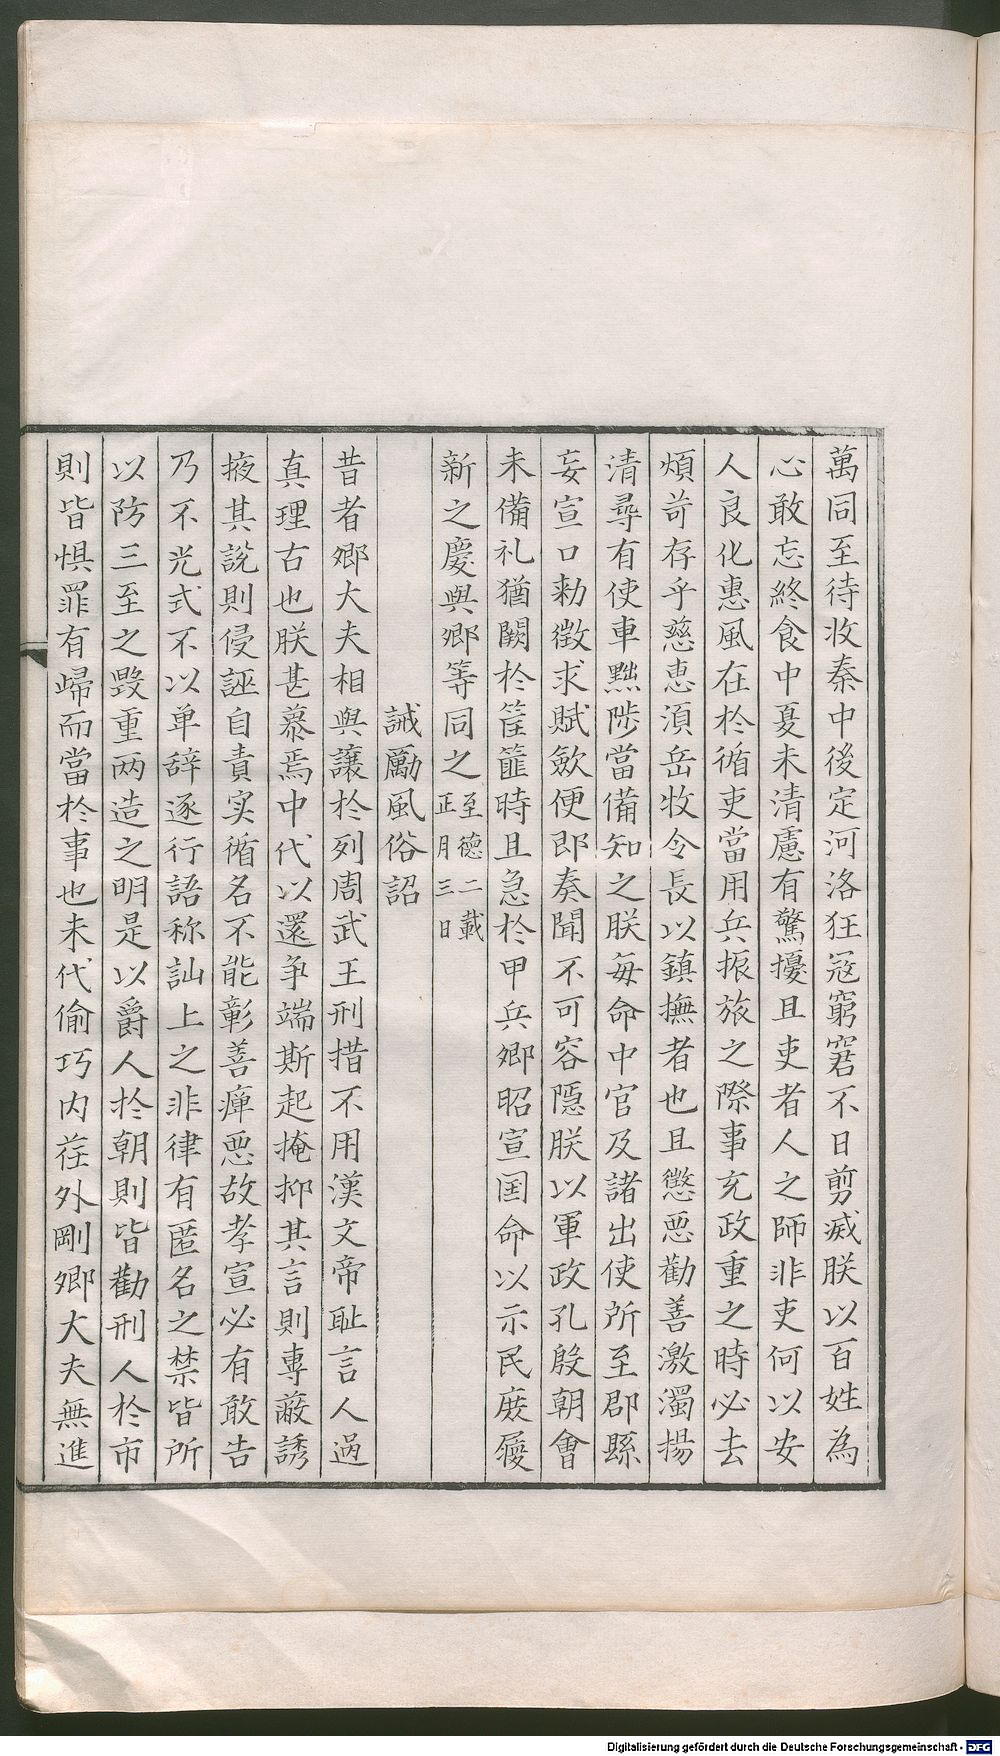 萬同至待收秦中後定河洛狂冦窮窘不日剪烕朕以百姓為
心敢忘終食中憂未清慮有驚擾且吏者人之師非吏何以安
人良化惠風在於循吏當用兵振旅之際事充政重之時必去
煩苛存乎慈恵湏岳牧令長以鎮撫者也且懲恶勸善激濁揚
清尋有使車黜陟當備知之朕每命中官及諸出使所至郡縣
妄宣口勑徵求賦歛便即奏聞不可容隱朕以軍政孔殷朝會
未備礼猶闕於筐篚時且急於甲兵卿昭宣囯命以示民庻履
新之慶與卿等同之至德二載正月三日
誡勵風俗詔
昔者郷大夫相與讓於列周武王刑措不用漢文帝耻言人過
真理古也朕甚慕焉中代以還争端斯起掩抑其言則專蔽誘
掖其說則侵誣自責实循名不能彰善瘅恶故孝宣必有敢告
乃不光式不以单辞逐行語称訕上之非律有匿名之禁皆所
以防三至之毀重两造之明是以爵人於朝則皆勸刑人於市
則皆惧罪有㱕而當於事也末代偷巧内荏外剛卿大夫無進
Digitalisierung gefördert durch die Deutsche Forschungsgemeinschaft - DFG